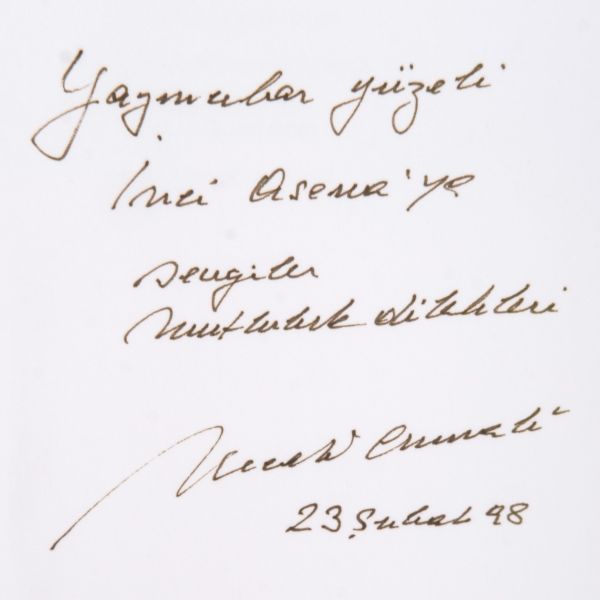 Yayıncılar güzeli
İnci Asena'ya
sevgiler
mutluluk dilekleri
Necati Cumalı
23 Şubat 98